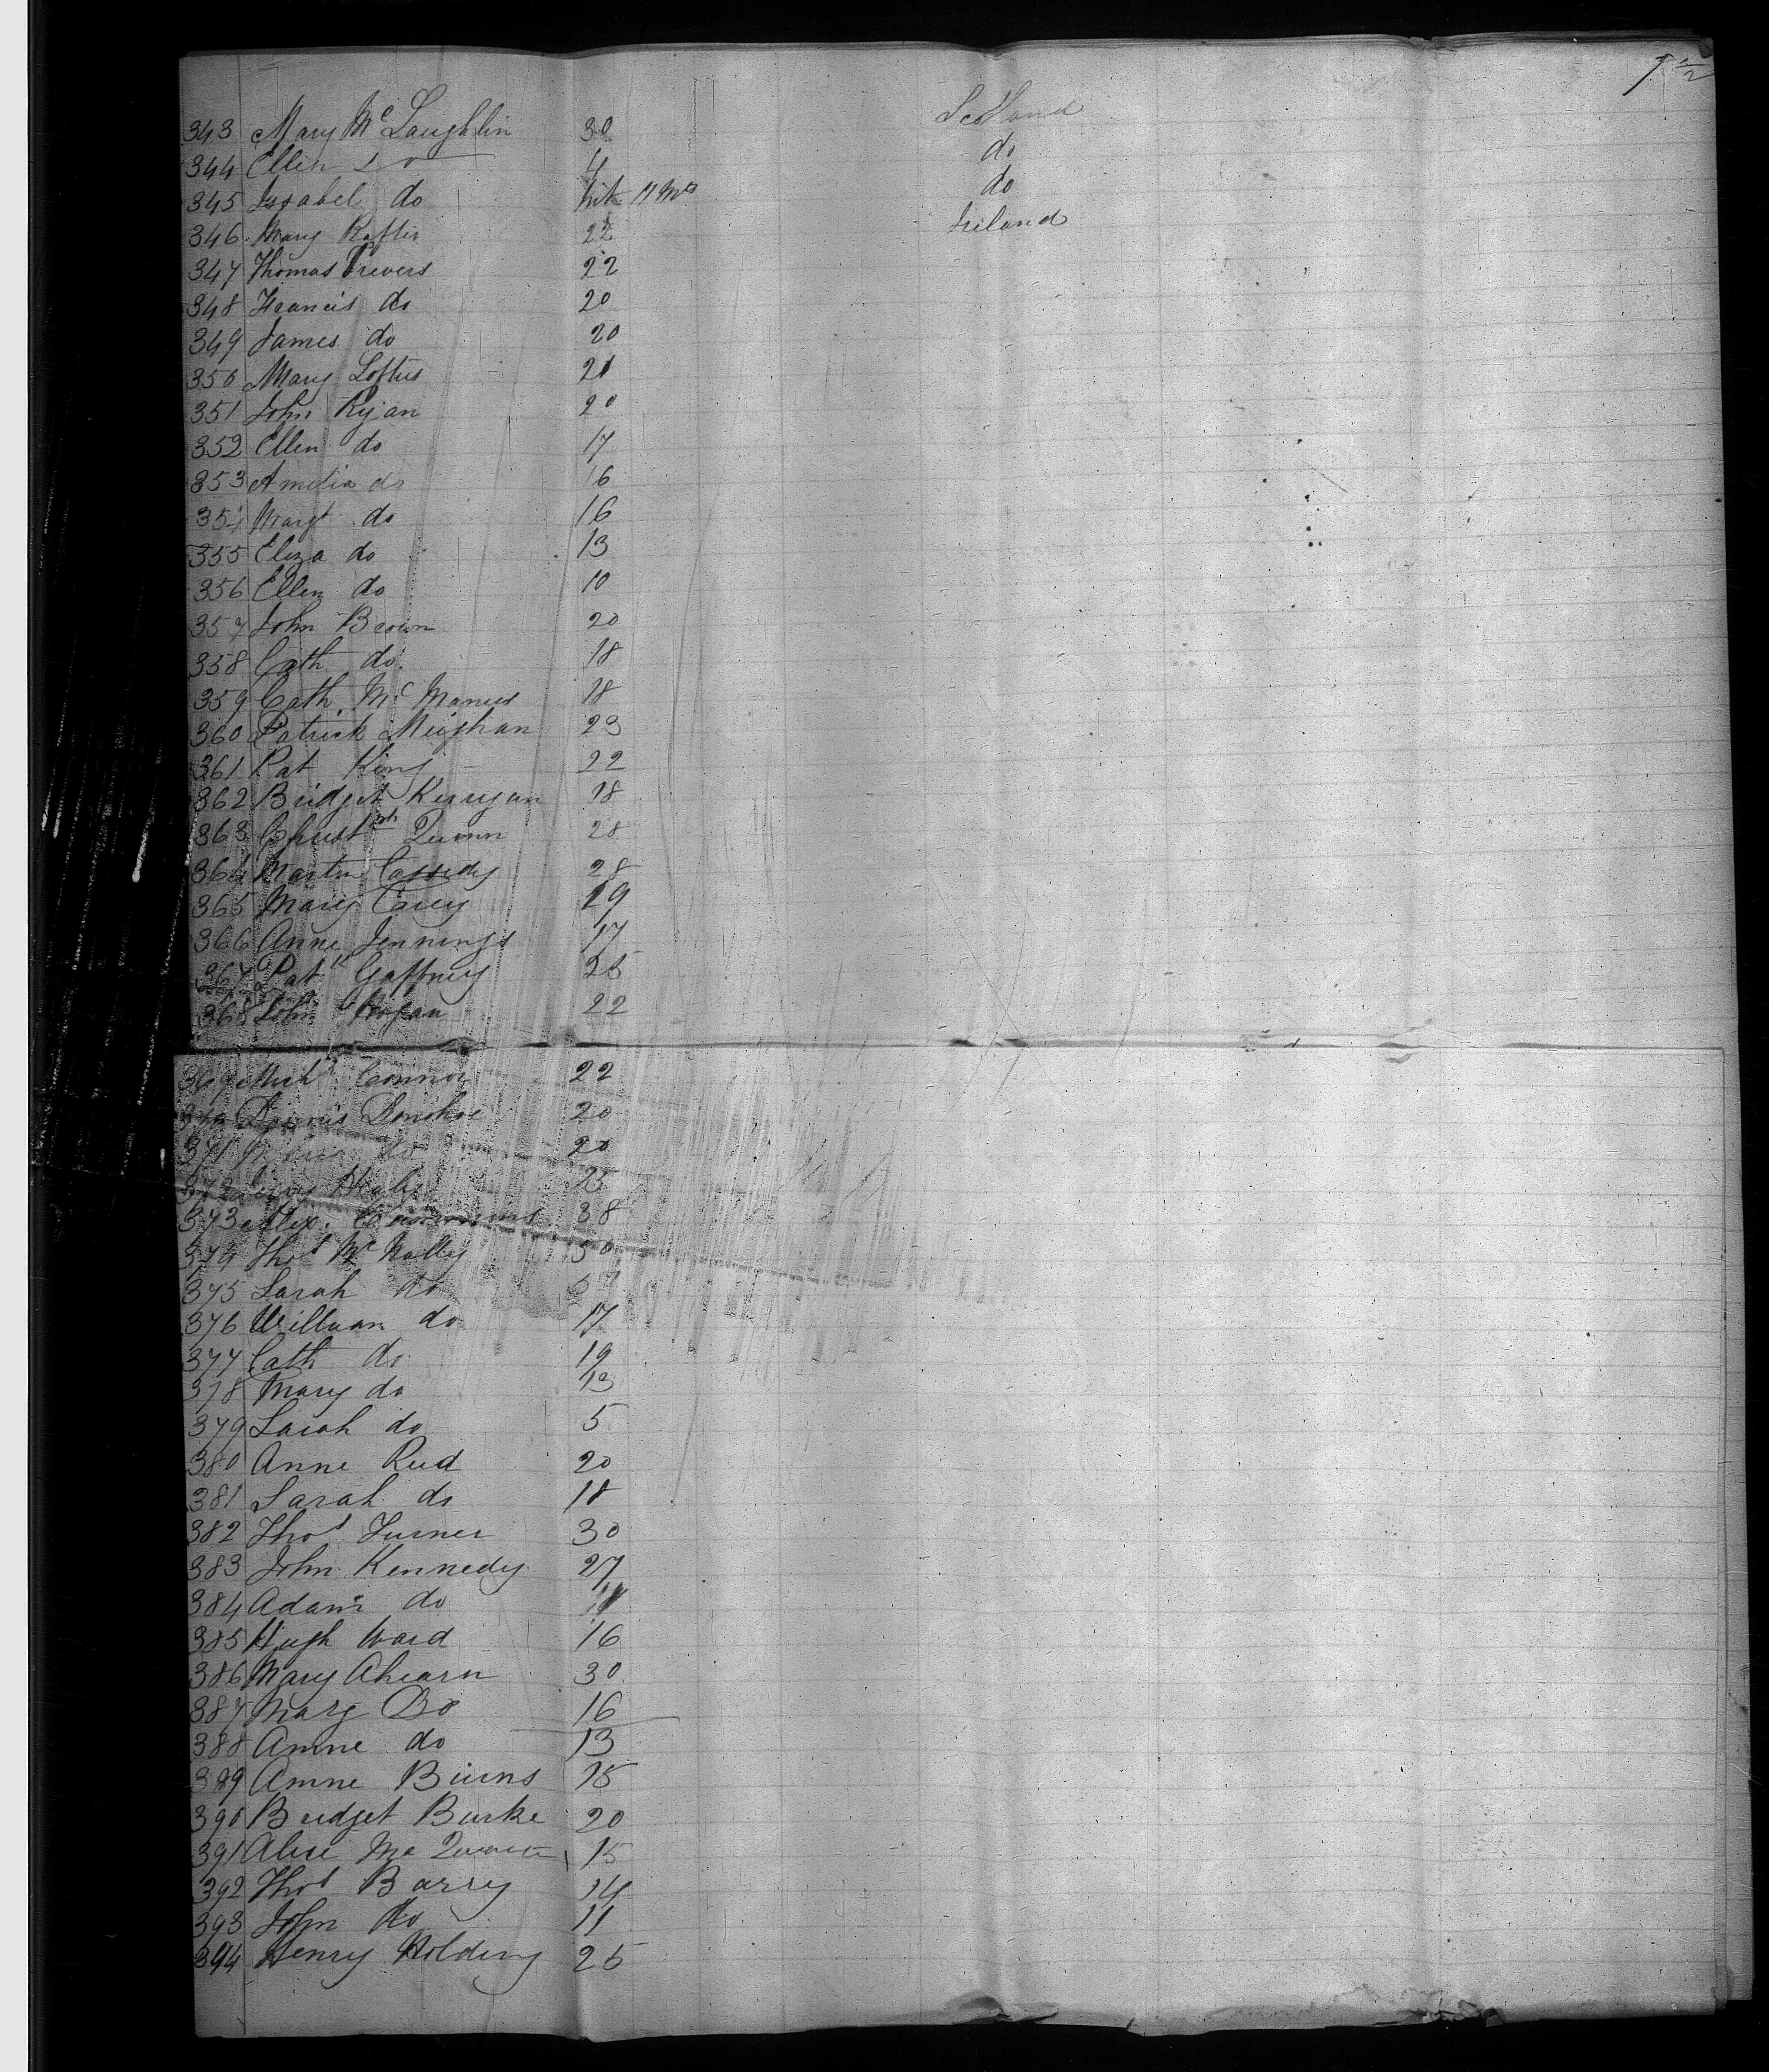 343 Mary McLaughlin 30 Scotland
344 Ellen do 4 do
345 Issabel do Inft 11 Mos do
346 Mary Rafter 22 Ireland
347 Thomas Trevers 22
348 Francis do 20
349 James do 20
350 Mary Loftus 21
351 John Ryan 20
352 Ellen do 17
353 Amelia do 16
354 Margt do 16
355 Eliza do 13
356 Ellen do 10
357 John Brown 20
358 Cath do 18
359 Cath. McManus 18
360 Patrick Meighan 23
361 Pat King 22
362 Bridget Kerrygan 18
363 Christ Quinn 28
364 Martin Cassedy 28
365 Mary Carey 19
366 Anne Jennings 17
367 Patk Gaffney 25
368 John Hogan 22
369 Michl Connor 22
370 Dennis Donohoe 20
371 do 20
372 25
373 Alex. Cummins 38
374 Thos McNally 50
375 Sarah do
376 William do 17
377 Cath do 19
378 Mary do 13
379 Sarah do 5
380 Anne Reid 20
381 Sarah do 18
382 Thos Turner 30
383 John Kennedy 27
384 Adam do
385 Hugh Ward 16
386 Mary Ahearn 30
387 Marg Do 16
388 Anne do 13
389 Anne Burns 18
390 Bridget Burke 20
391 Alice Mc 15
392 Thos Barry 14
393 John do 11
394 Henry Holding 25